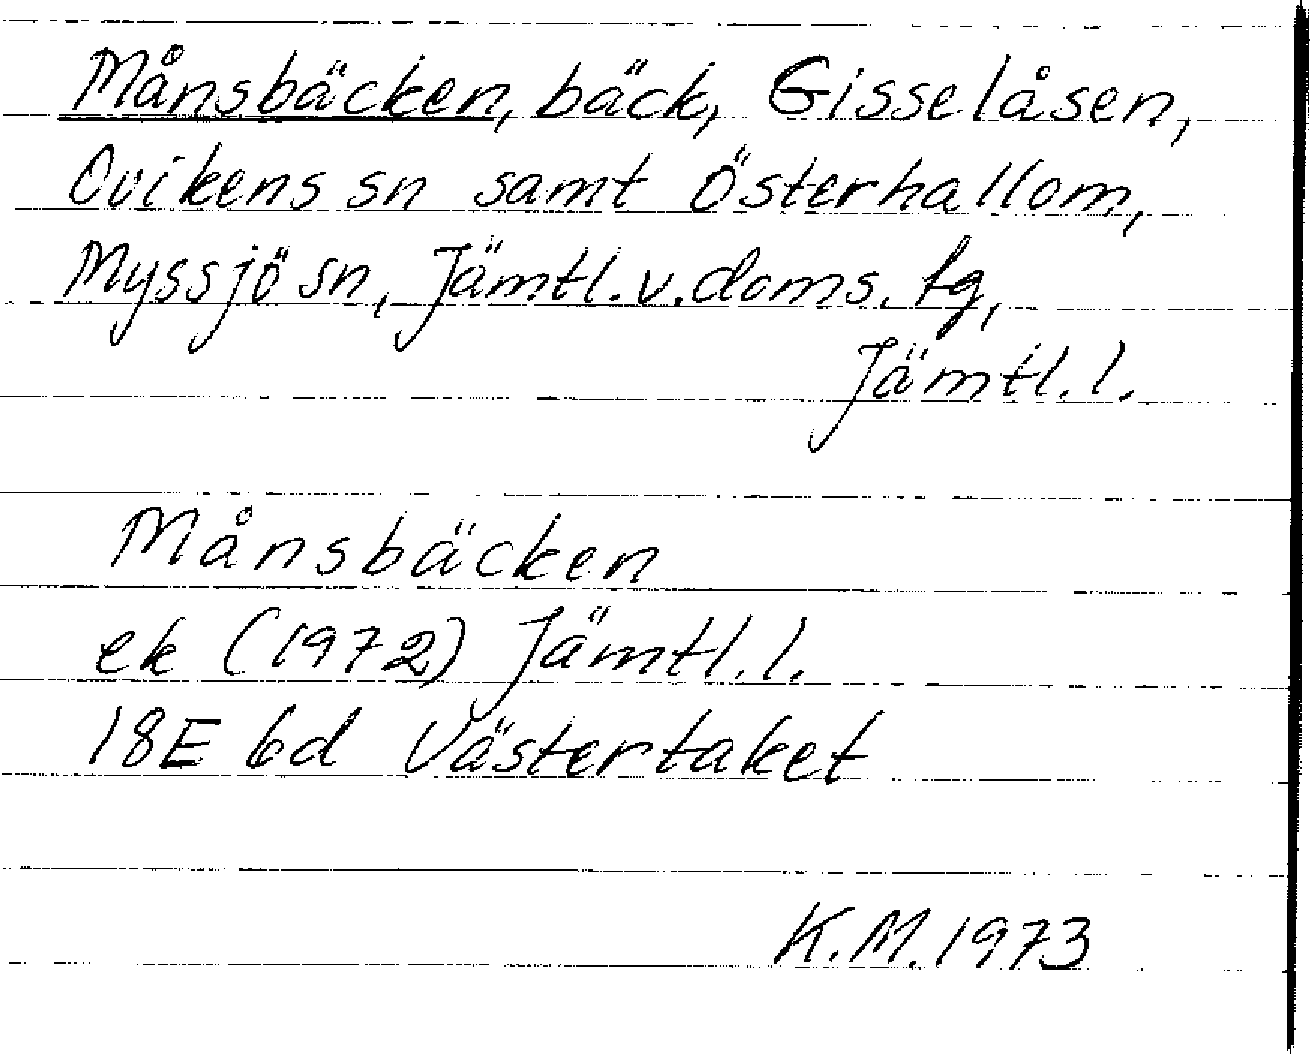 Månsbäcken, bäck, Gisselåsen,
Ovikens sn samt Österhallom,
Myssjö sn, Jämtl.v.doms.tg,
Jämtl.l.
Månsbäcken
ek (1972) Jämtl.l.
18E 6d Västertaket
K.M.1973